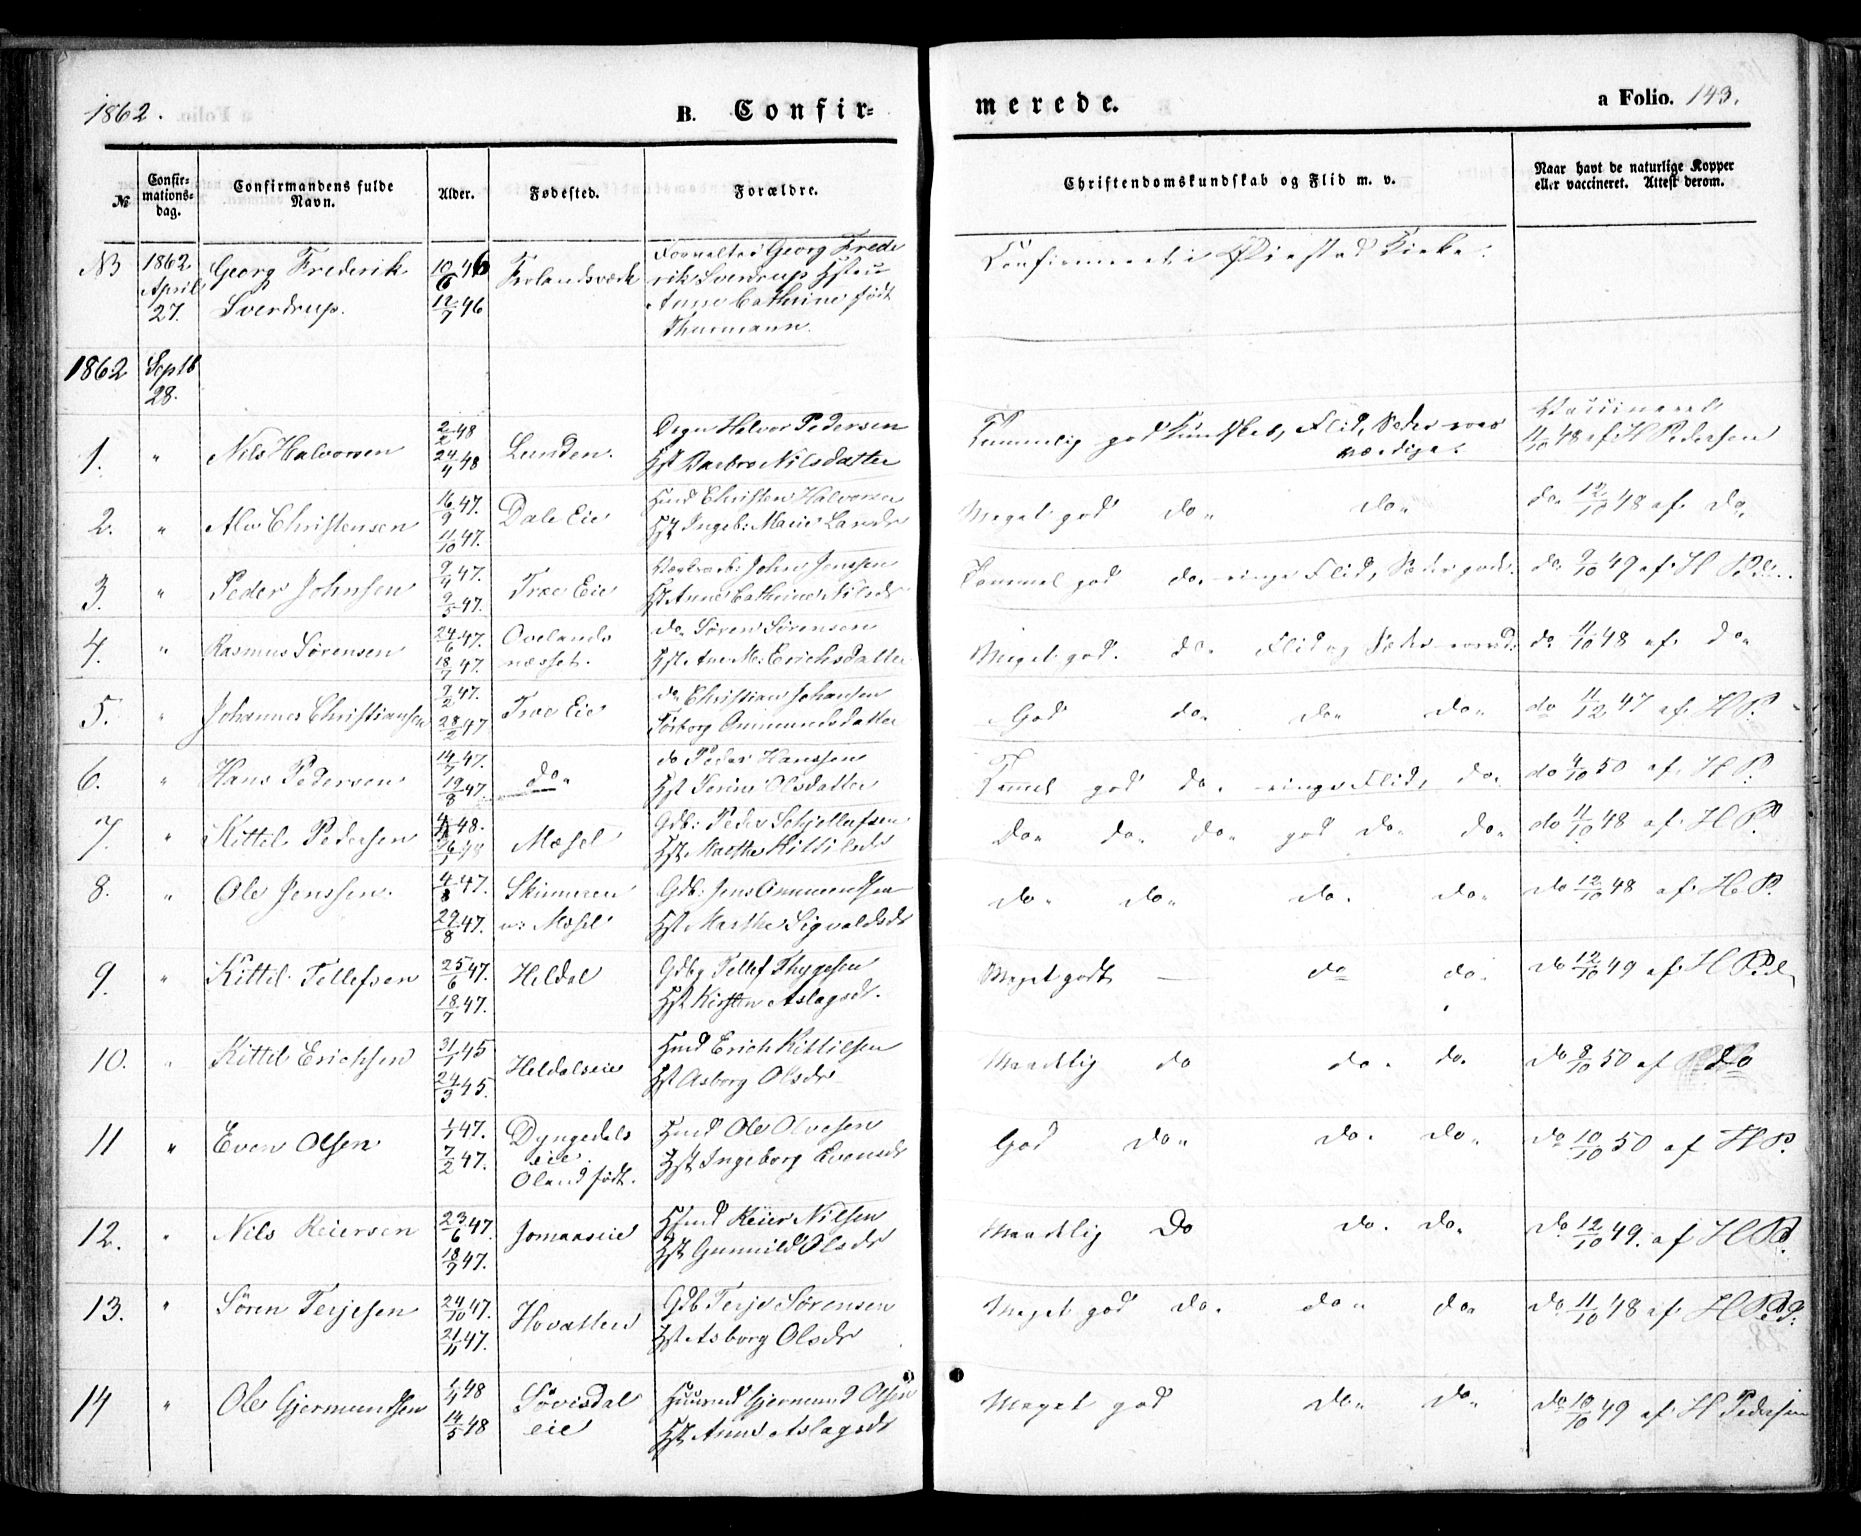 1862.
B. Confir-
merede.
a Folio. 143.
№
Confir-
mations-
dag.
Confirmandens fulde
Navn.
Alder.
Fødested.
Forældre.
Christendomskundskab og Flid m. v.
Naar havt de naturlige Kopper
eller vaccineret. Attest derom.
NB 1862 April 27. Georg Frederik Sverdrup. 10/6 46 12/7 46 Frolandsværk
Forvalter Georg Frede
rik Sverdrup Hstru
Anne Cathrine født
Thuemann.
Confirmeret i Øiestad Kirke.
1862 Septb 28.
1. " Nils Halvorsen 2/2 48 24/4 48 Lunden.
Halvor Pedersen
Hst Barbro Nilsdatter
Temmelig god Kundskab, Flid, Sæder roes
værdige.
Vaccineret
11/10 48 af H Pedersen
2. " Alv Christensen 16/9 47. 11/10 47. Dale Eie
Hmd Christen Halvorsen
Hst Ingeb: Marie Larsdr
Meget god do. do.
do 12/10 48 af do.
3. " Peder Johnsen 9/4 47. 9/5 47. Træe Eie
John Jenssen
Hst Anne Cathrine Nilsdr
Temmel god do. ringe Flid, Sæder gode.
do. 9/10 49 af H Ped
4. " Rasmus Sørensen 24/6 47. 18/7 47. Ovelands
næsset.
do. Søren Sørensen
Hst. Ane M: Erichsdatter
Meget god. do. Flid og Sæder
do 11/10 48 af do.
5. " Johannes Christiansen 7/2 47. 28/2 47 Træe Eie
do. Christian Johansen
Torborg Ommundsdatter
God do. do. do.
do 11/12 47 af H P
6. " Hans Pedersen 14/7 47. 19/8 47. do.
do Peder Hanssen
Hst Torine Olsdatter
Temmel god do. ringe Flid, do.
do 4/10 50 af H P.
7. " Kittil Pedersen 48. 26/1 48 Mæsel
Gdb: Peder Schjellefsen
Hst. Marthe Kittilsdr
do. do. do. god do. do.
do 11/10 48 af H P.
8. " Ole Jenssen. 4/8 47. 29/8 47. Skinneren
u: Mæsel
Gdb: Jens Ommundsen
Hst Marthe Sigvaldsdr
do. do. do. do.
do 12/10 48 af H. P.
9. " Kittil Tellefsen 25/6 47. 18/7 47. Heldal
Gdbg Tellef Thygesen
Hst Kirsten Aslagsd.
Meget godt — do do.
do 12/10 49 af H Ped
10. " Kittil Erichsen 31/1 45 24/3 45. Heldalseie
Hmd Erich Kittilsen
Hst Asborg Olsdr
Maadelig do do. do.
do 8/10 50 af do
11 " Even Olsen 1/1 47. 7/2 47. Dyngedals
eie.
Oland født.
Hmd Ole Olvesen
Hst Ingeborg Evensdr
God do. do. do.
do 10/10 50 af H P.
12. " Nils Reiersen 23/6 47. 18/7 47. Jomaaseie
Hmd Reier Nilsen
Hst Gunnild Olsdr
Maadelig do do. do.
do 12/10 49. af H Pd.
13. " Sören Terjesen 24/10 47. 21/11 47. Hovatten
Gdb Terje Sørensen
Hst Asborg Olsdr
Meget god do. do. do.
do. 11/10 48 af H Ped.
14 " Ole Gjermundsen 1/4 48 14/5 48 Løvisdal
eie
Huusmd Gjermund Olsen
Hst Anne Aslagsdr
Meget god do. do.
do 10/10 49 af H Pedersen